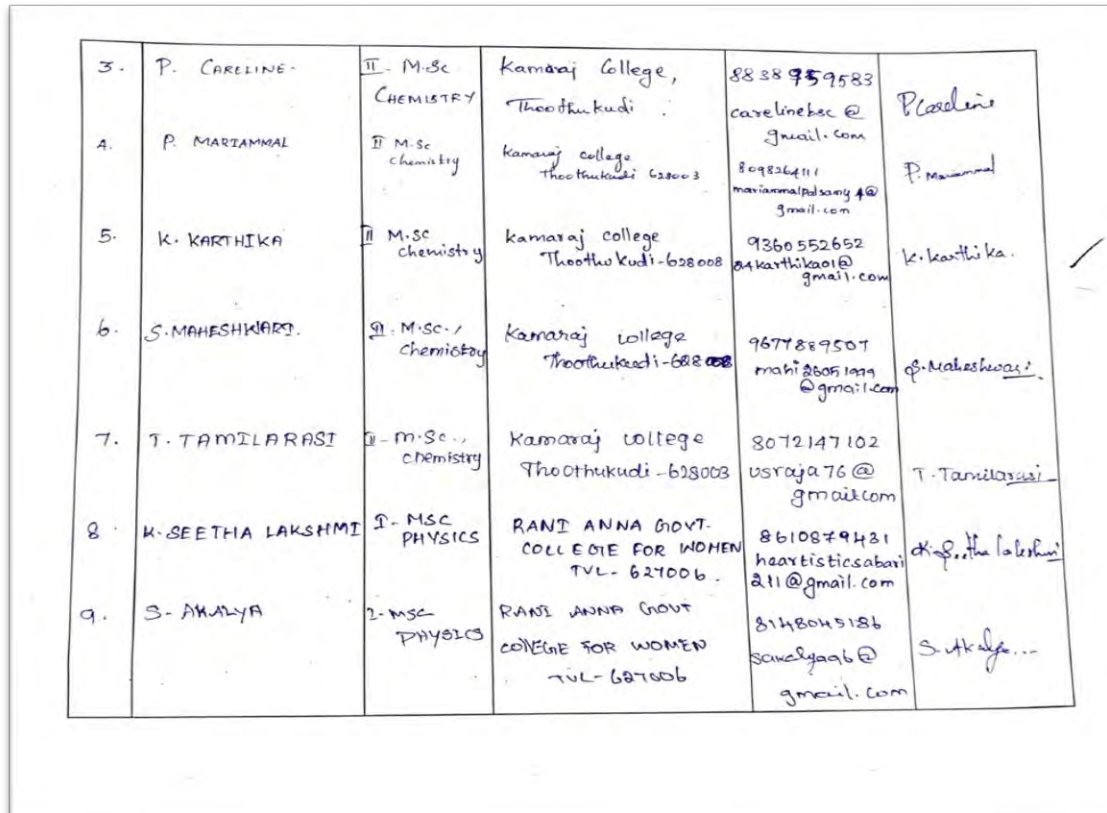 3. P. CARELINE- II - M.Sc CHEMISTRY Kamaraj College, Thoothukudi. 8838959583 carelinebsc@gmail.com P Careline
4. P. MARIAMMAL II M.Sc chemistry Kamaraj college Thoothukudi 628003 8098264111 mariammalpalsamy4@gmail.com P. Mariammal
5. K. KARTHIKA II M.SC chemistry kamaraj college Thoothukudi-628008 9360552652 04karthika01@gmail.com K. Karthika.
6. S. MAHESHWARI. II. M.SC., chemistry Kamaraj college Thoothukudi-628008 9677889507 mahi26051999@gmail.com S. Maheshwari.
7. T. TAMILARASI II- M.Sc., chemistry Kamaraj college Thoothukudi-628003 8072147102 usraja76@gmail.com T. Tamilarasi
8. K. SEETHA LAKSHMI I- MSC PHYSICS RANI ANNA GOVT. COLLEGE FOR WOMEN TVL- 627006. 8610879431 heartisticsabari211@gmail.com K. Seetha lakshmi
9. S- AKALYA I- MSC PHYSICS RANI ANNA GOVT COLLEGE FOR WOMEN TVL- 627006 8148045186 sakalya96@gmail.com S. Akalya...